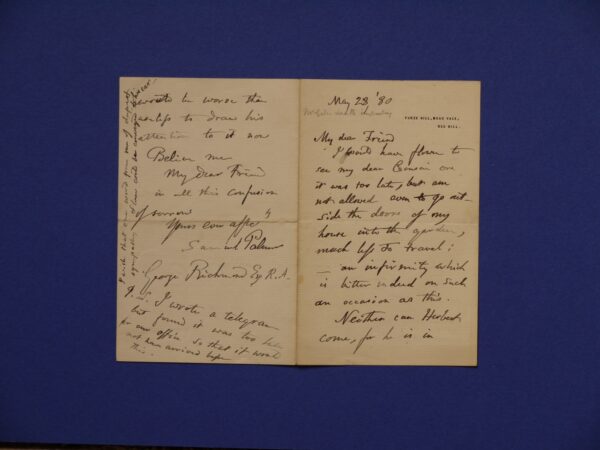 May 28 '80
FURZE HILL, MEAD VALE,
RED HILL.
My dear Friend
I would have flown to
see my dear Cousin ere
it was too late, but am
not allowed even to go out-
side the doors of my
house into the garden,
much less to travel:
— an infirmity which
is bitter indeed on such
an occasion as this.
Neither can Herbert
come, for he is in
would be worse than
useless to draw his
attention to it now
Believe me
My dear Friend
in all this confusion
of sorrow
Yours ever affec^ly
Samuel Palmer
George Richmond Esq R.A.
P.S. I wrote a telegram
but found it was too late
for our office so that it would
not have arrived before
this.
I wish that any word from me of deepest
sympathy & love could be conveyed